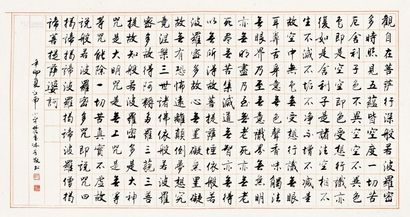 觀自在菩薩行深般若波羅蜜
多時照見五蘊皆空度一切苦
厄舍利子色不異空空不異色
色即是空空即是色受想行識亦
復如是舍利子是諸法空相不
生不滅不垢不淨不增不減是
故空中無色無受想行識無眼
耳鼻舌身意無色聲香味觸法
無眼界乃至無意識界無無明
亦無無明盡乃至無老死亦無老
死盡無苦集滅道無智亦無得
以無所得故菩提薩埵依般若
波羅蜜多故心無罣礙無罣礙
故無有恐怖遠離顛倒夢想究
竟涅槃三世諸佛依般若波羅
蜜多故得阿耨多羅三藐三菩
提故知般若波羅蜜多是大神
咒是大明咒是無上咒是無等
等咒能除一切苦真實不虛故
說般若波羅蜜多咒即說咒曰
揭諦揭諦波羅揭諦波羅僧揭
諦菩提薩婆訶
辛卯夏